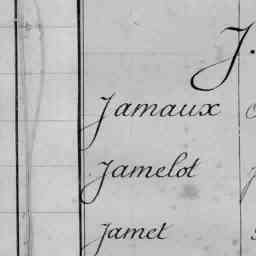 J.
Jamaux
Jamelot
Jamet